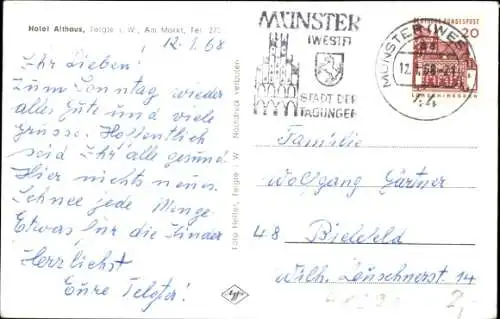 Hotel Althaus, Telgte i. W., Am Markt, Tel. 270
12.1.68
Ihr Lieben!
Zum Sonntag wieder
alles Gute und viele
Grüsse. Hoffentlich
seid Ihr alle gesund.
Hier nichts neues.
Schnee jede Menge.
Etwas für die Kinder
Herzlichst
Eure Telgter!
Foto Heller, Telgte i. W. Nachdruck verboten
Agfa
MÜNSTER
(WESTF)
STADT DER
TAGUNGEN
MÜNSTER (WESTF)
12.1.68-21
DEUTSCHE BUNDESPOST
20
Familie
Wolfgang Gärtner
48 Bielefeld
Wilh. Leuschnerst. 14
2,-